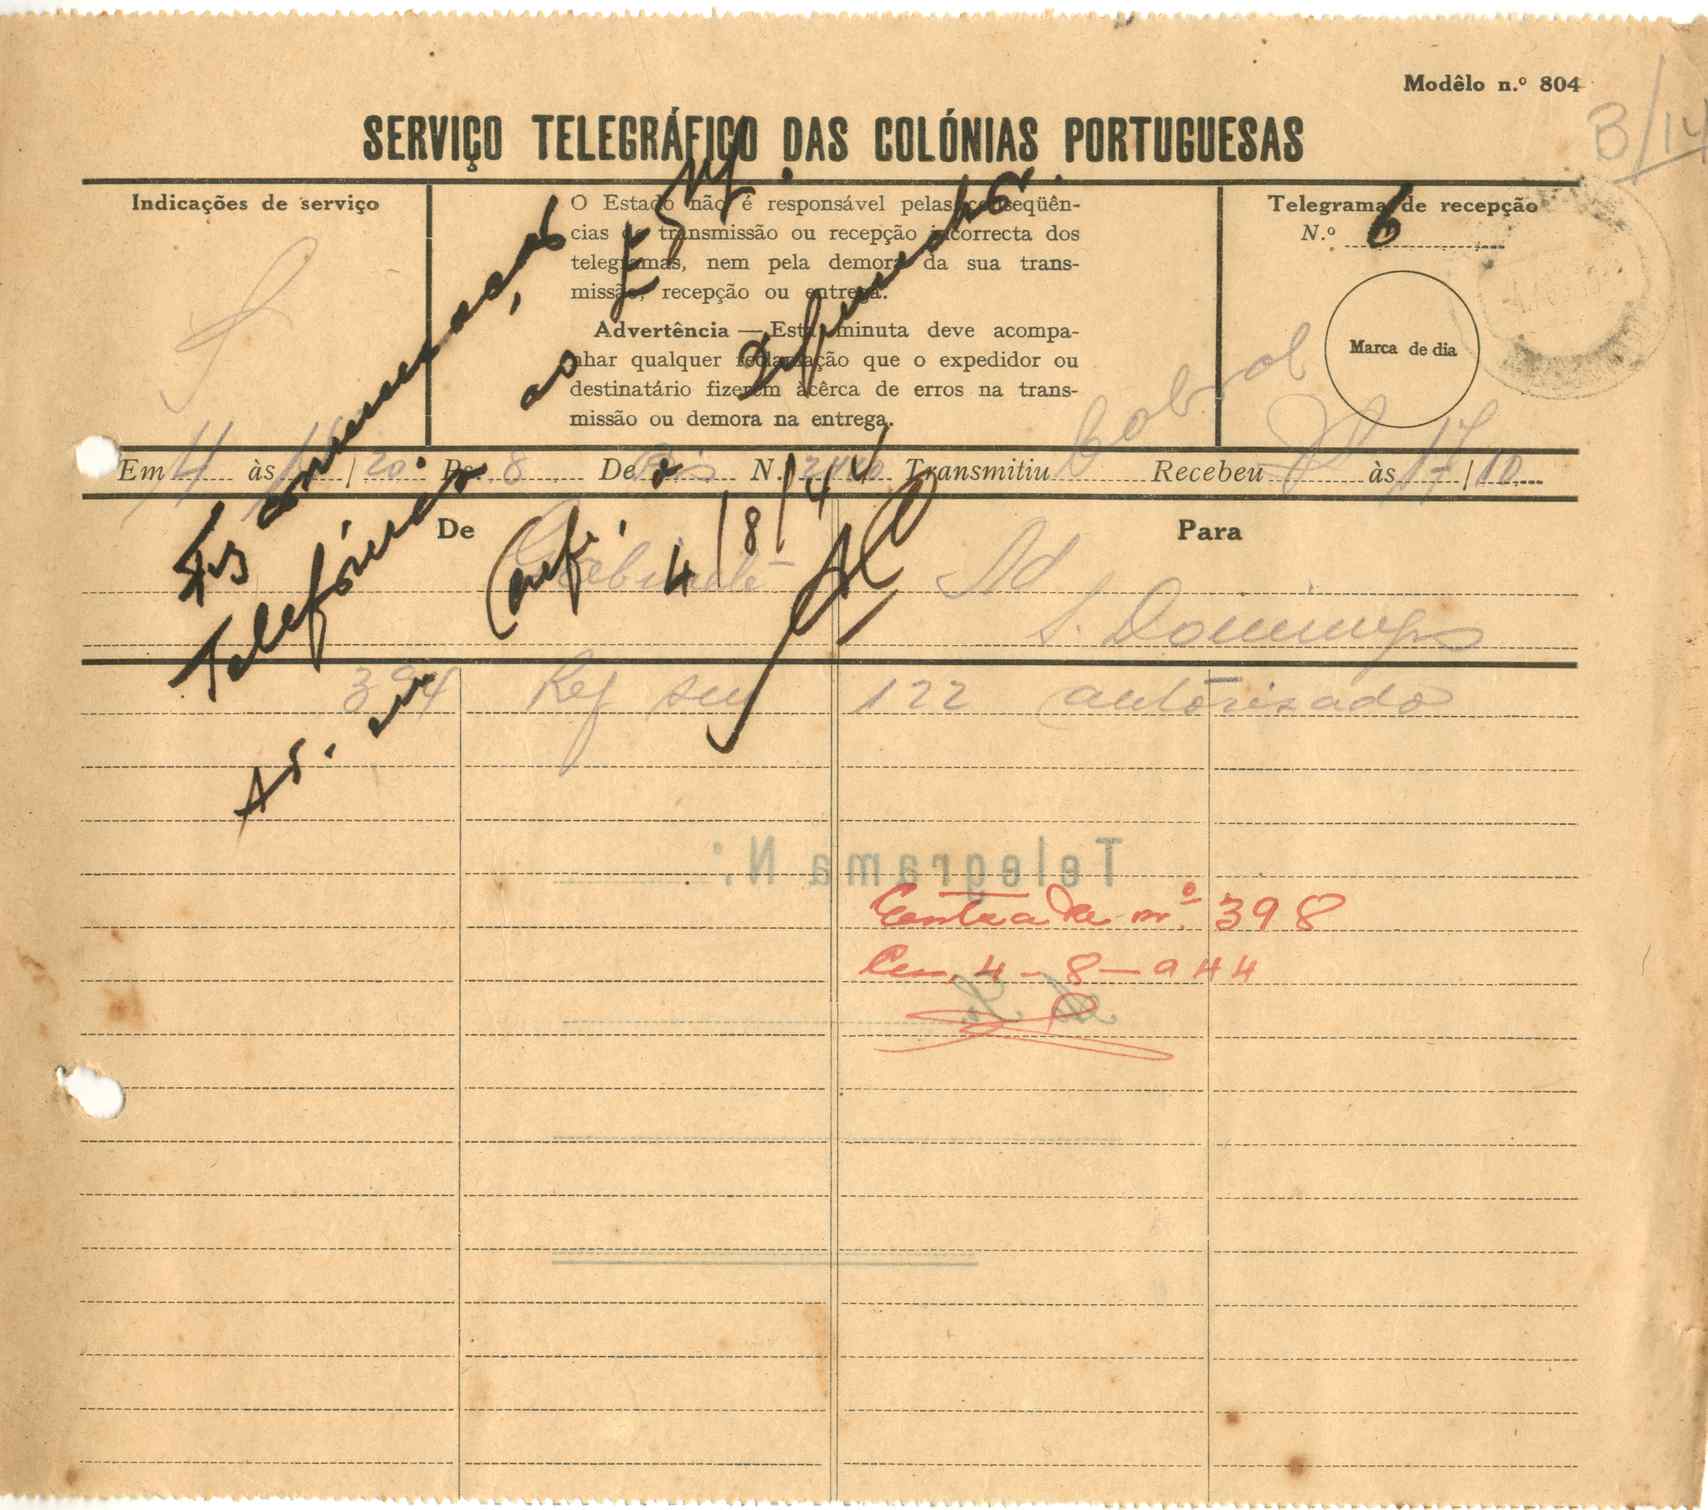 Modêlo n.º 804
B/14
SERVIÇO TELEGRÁFICO DAS COLÓNIAS PORTUGUESAS
Indicações de serviço
O Estado não é responsável pelas conseqüên-
cias de transmissão ou recepção incorrecta dos
telegramas, nem pela demora da sua trans-
missão, recepção ou entrega.
Advertência — Esta minuta deve acompa-
nhar qualquer reclamação que o expedidor ou
destinatário fizerem àcêrca de erros na trans-
missão ou demora na entrega.
Telegrama de recepção
N.º 6
Marca de dia
Em 4 às 16/20 P. 8 De Bis N. Transmitiu Cabral Recebeu às 17/10
De
Para
Gabinete
Ad
S. Domingos
394 Ref seu 122 autorisado
Telefónicas ao
4/8/44
Telegrama N.º
Entrada n.º 398
Em 4-8-944